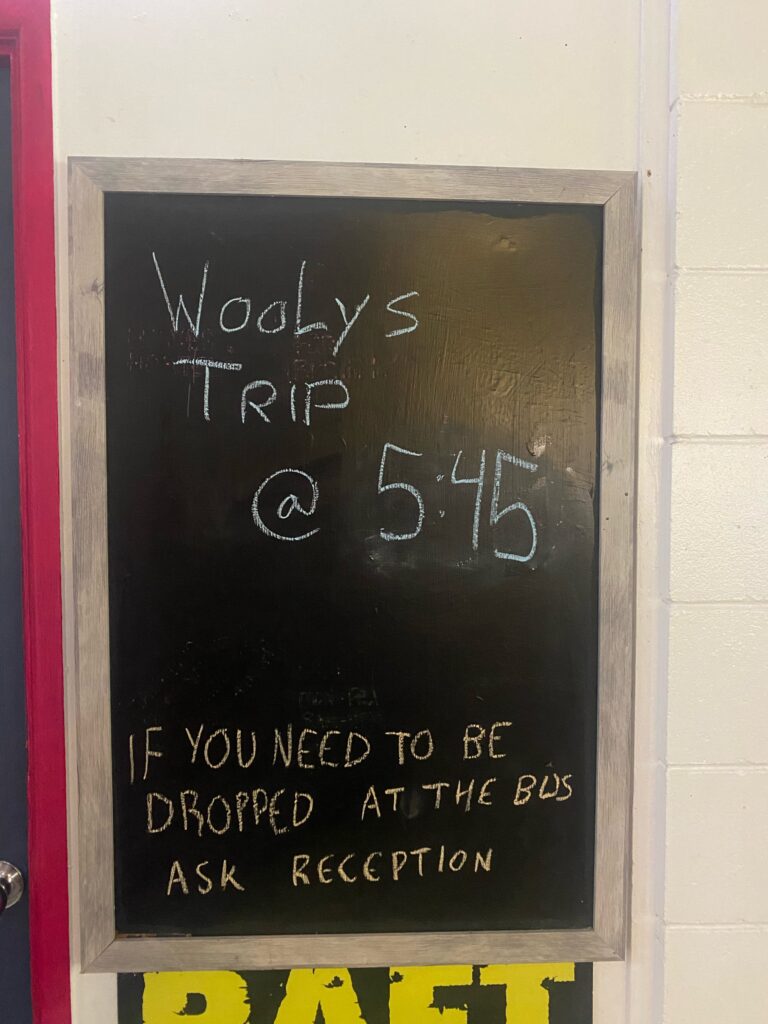 WOOLYS
TRIP
@ 5:45
IF YOU NEED TO BE
DROPPED AT THE BUS
ASK RECEPTION
RAFT